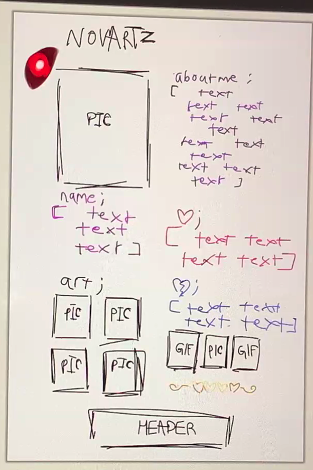 NOVARTZ
PIC
aboutme ;
[ text
text text
text text
text
text text
text
text text
text ]
name;
[ text
text
text ]
♡;
[ text text
text text]
art;
PIC PIC
PIC PIC
;
[ text text
text text]
GIF PIC GIF
HEADER